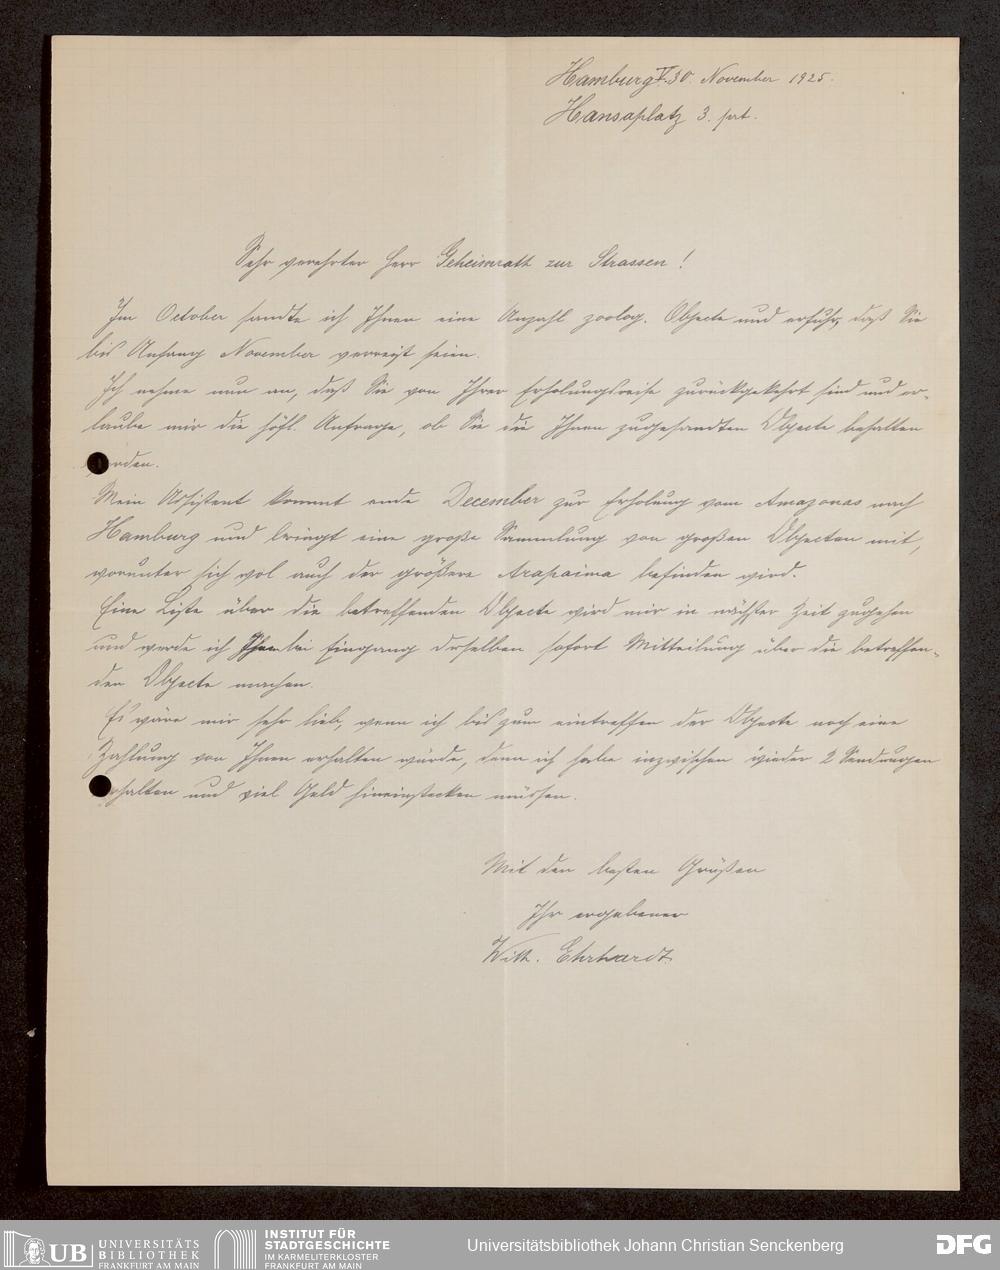 Hamburg V. 30. November 1925.
Hansaplatz 3. prt.
Sehr verehrter Herr Geheimrath zur Strassen!
Im October sandte ich Ihnen eine Anzahl zoolog. Objecte und erfuhr, daß Sie
bis Anfang November verreist seien.
Ich nehme nun an, daß Sie von Ihrer Erholungsreise zurückgekehrt sind und er-
laube mir die höfl. Anfrage, ob Sie die Ihnen zugesandten Objecte behalten
werden.
Mein Assistent kommt ende December zur Erholung vom Amazonas nach
Hamburg und bringt eine große Sammlung von großen Objecten mit,
worunter sich wol auch der größere Arapaima befinden wird.
Eine Liste über die betreffenden Objecte wird mir in nächster Zeit zugehen
und werde ich Ihnen bei Eingang derselben sofort Mitteilung über die betreffen-
den Objecte machen.
Es wäre mir sehr lieb, wenn ich bis zum eintreffen der Objecte noch eine
Zahlung von Ihnen erhalten würde, denn ich habe inzwischen wieder 2 Sendungen
erhalten und viel Geld hineinstecken müssen.
Mit den besten Grüßen
Ihr ergebener
Wilh. Ehrhardt
UB UNIVERSITÄTS
BIBLIOTHEK
FRANKFURT AM MAIN
INSTITUT FÜR
STADTGESCHICHTE
IM KARMELITERKLOSTER
FRANKFURT AM MAIN
Universitätsbibliothek Johann Christian Senckenberg
DFG